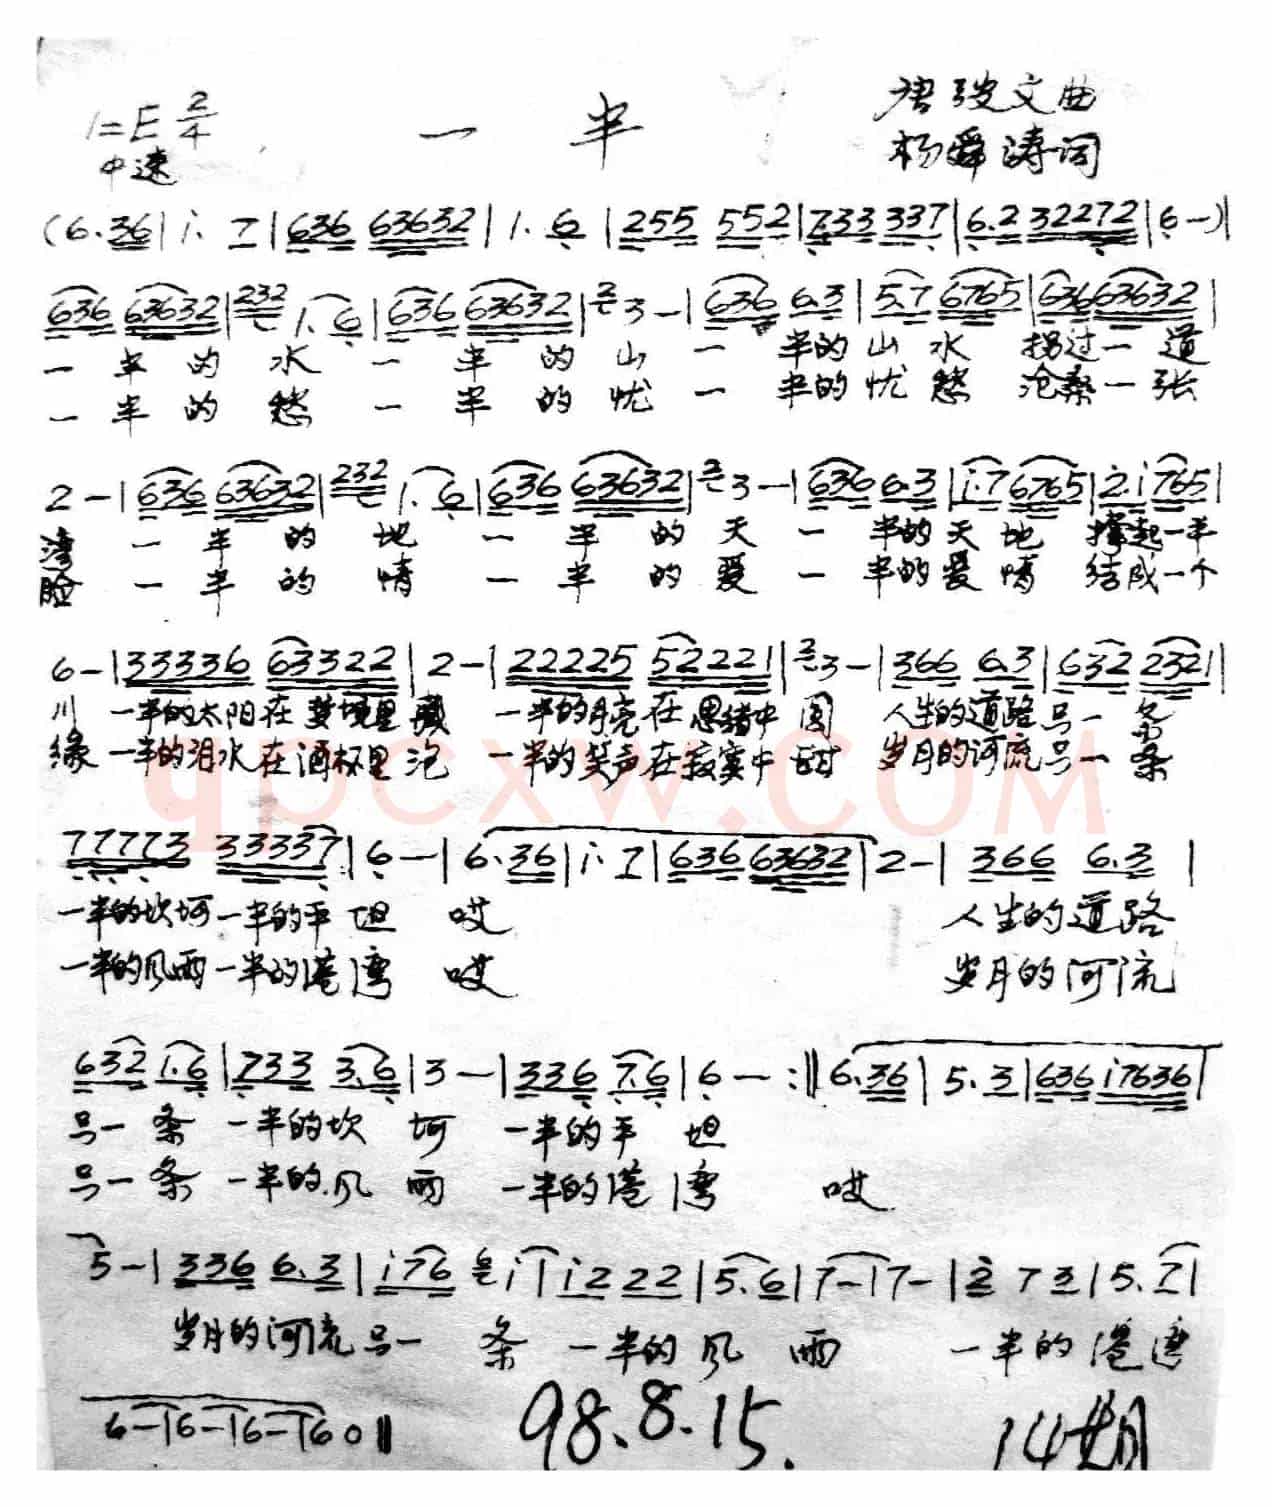 1=E 2/4
中速
一 半
唐 文曲
杨舜涛词
(6.36|i. 7|636 63632|1. 6|255 552|733 337|6.2 32272|6-)|
636 63632|232 1. 6|636 63632|2 3-|636 6.3|5.7 6765|63663632|
一 半 的 水 一 半 的 山 一 半的山水 拐过一道
一 半 的 愁 一 半 的 忧 一 半的忧愁 沧桑一张
2-|636 63632|232 1. 6|636 63632|2 3-|636 6.3|i.7 6765|2.i765|
湾 一 半 的 地 一 半 的 天 一 半的天地 撑起一半
脸 一 半 的 情 一 半 的 爱 一 半的爱情 结成一个
6-|33336 63322|2-|22225 52221|2 3-|366 6.3|632 2321|
川 一半的太阳在梦境里藏 一半的月亮在思绪中圆 人生的道路只一条
缘 一半的泪水在酒杯里泡 一半的笑声在寂寞中甜 岁月的河流只一条
qpcxw.COM
77773 33337|6-|6.36|i. 7|636 63632|2-|366 6.3|
一半的坎坷一半的平坦 哎 人生的道路
一半的风雨一半的港湾 哎 岁月的河流
632 1.6|733 3.6|3-|336 7.6|6-:‖6.36|5.3|636 i7636|
只一条 一半的坎坷 一半的平坦
只一条 一半的风雨 一半的港湾 哎
5-|336 6.3|i76 6 i|i2 22|5.6|7-|7-|2 7 2|5.7|
岁月的河流只一 条 一半的风 雨 一半的港湾
6-|6-|6-|60‖
98.8.15.
14期